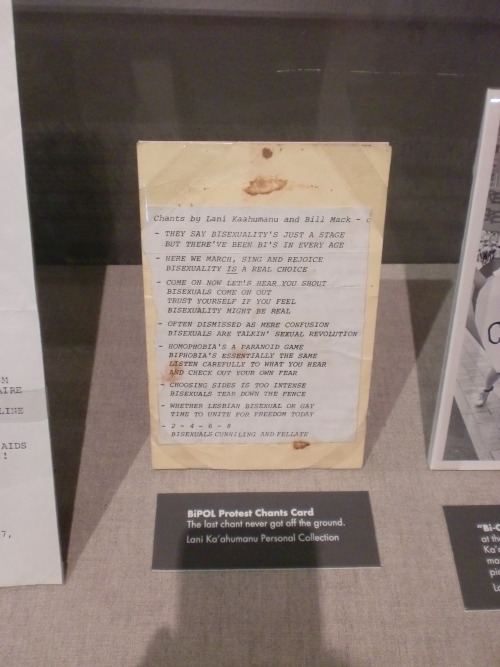 Chants by Lani Kaahumanu and Bill Mack - c
- THEY SAY BISEXUALITY'S JUST A STAGE
BUT THERE'VE BEEN BI'S IN EVERY AGE
- HERE WE MARCH, SING AND REJOICE
BISEXUALITY IS A REAL CHOICE
- COME ON NOW LET'S HEAR YOU SHOUT
BISEXUALS COME ON OUT
TRUST YOURSELF IF YOU FEEL
BISEXUALITY MIGHT BE REAL
- OFTEN DISMISSED AS MERE CONFUSION
BISEXUALS ARE TALKIN' SEXUAL REVOLUTION
- HOMOPHOBIA'S A PARANOID GAME
BIPHOBIA'S ESSENTIALLY THE SAME
LISTEN CAREFULLY TO WHAT YOU HEAR
AND CHECK OUT YOUR OWN FEAR
- CHOOSING SIDES IS TOO INTENSE
BISEXUALS TEAR DOWN THE FENCE
- WHETHER LESBIAN BISEXUAL OR GAY
TIME TO UNITE FOR FREEDOM TODAY
- 2 - 4 - 6 - 8
BISEXUALS CUNNILING AND FELLATE
BiPOL Protest Chants Card
The last chant never got off the ground.
Lani Ka'ahumanu Personal Collection
M
AIRE
LINE
AIDS
!
7,
"Bi-C
at th
Ka'a
ma
pi
L
C